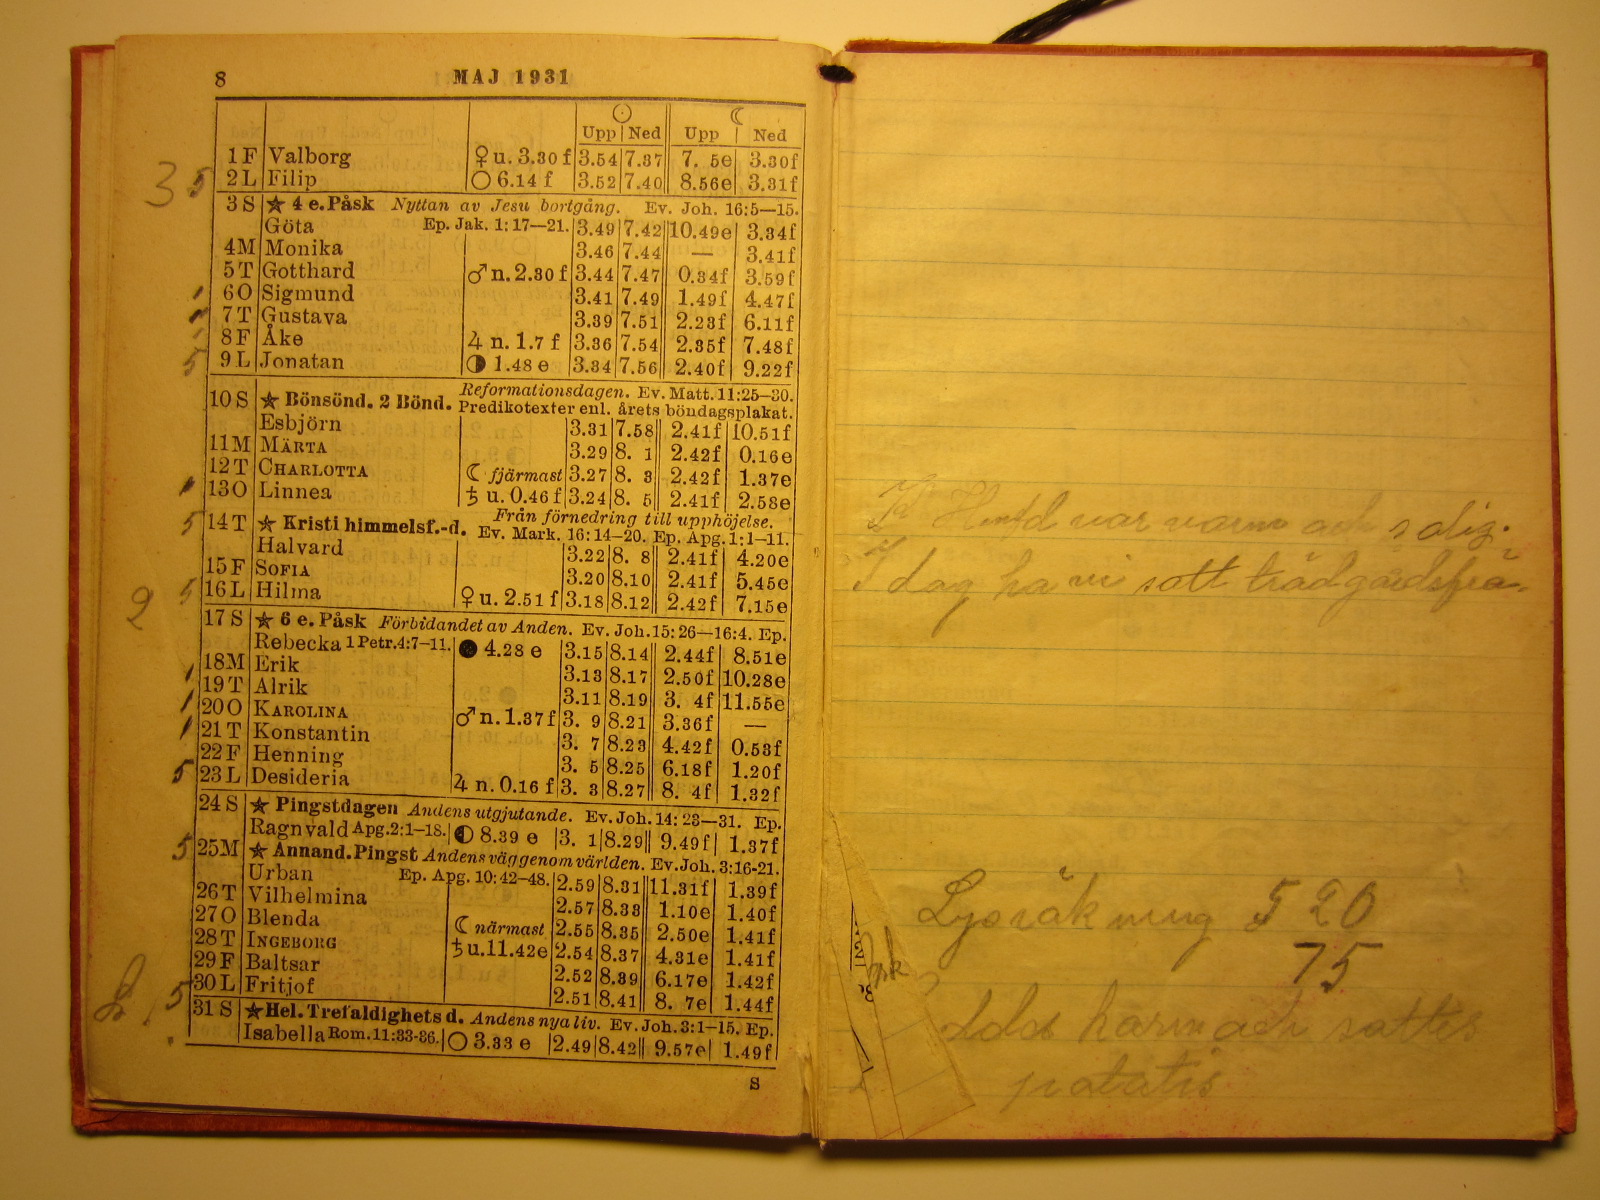 8 MAJ 1931
☉ ☾
Upp Ned Upp Ned
1 F Valborg ♀ u. 3.30 f 3.54 7.37 7. 5e 3.30f
3 5 2 L Filip ○ 6.14 f 3.52 7.40 8.56e 3.31f
3 S ★ 4 e. Påsk Nyttan av Jesu bortgång. Ev. Joh. 16:5—15.
Göta Ep. Jak. 1:17—21. 3.49 7.42 10.49e 3.34f
4 M Monika 3.46 7.44 — 3.41f
5 T Gotthard ♂ n. 2.30 f 3.44 7.47 0.34f 3.59f
6 O Sigmund 3.41 7.49 1.49f 4.47f
7 T Gustava 3.39 7.51 2.23f 6.11f
8 F Åke ♃ n. 1.7 f 3.36 7.54 2.35f 7.48f
5 9 L Jonatan ◑ 1.48 e 3.34 7.56 2.40f 9.22f
Reformationsdagen. Ev. Matt. 11:25—30.
10 S ★ Bönsönd. 2 Bönd. Predikotexter enl. årets böndagsplakat.
Esbjörn 3.31 7.58 2.41f 10.51f
11 M MÄRTA 3.29 8. 1 2.42f 0.16e
12 T CHARLOTTA ☾ fjärmast 3.27 8. 3 2.42f 1.37e
13 O Linnea ♄ u. 0.46 f 3.24 8. 5 2.41f 2.58e
Från förnedring till upphöjelse.
5 14 T ★ Kristi himmelsf.-d. Ev. Mark. 16:14—20. Ep. Apg. 1:1—11.
Halvard 3.22 8. 8 2.41f 4.20e
15 F SOFIA 3.20 8.10 2.41f 5.45e
2 5 16 L Hilma ♀ u. 2.51 f 3.18 8.12 2.42f 7.15e
17 S ★ 6 e. Påsk Förbidandet av Anden. Ev. Joh. 15:26—16:4. Ep.
Rebecka 1 Petr. 4:7—11. ● 4.28 e 3.15 8.14 2.44f 8.51e
18 M Erik 3.13 8.17 2.50f 10.28e
19 T Alrik 3.11 8.19 3. 4f 11.55e
20 O KAROLINA ♂ n. 1.37 f 3. 9 8.21 3.36f —
21 T Konstantin 3. 7 8.23 4.42f 0.53f
22 F Henning 3. 5 8.25 6.18f 1.20f
5 23 L Desideria ♃ n. 0.16 f 3. 3 8.27 8. 4f 1.32f
24 S ★ Pingstdagen Andens utgjutande. Ev. Joh. 14:23—31. Ep.
Ragnvald Apg. 2:1—18. ◐ 8.39 e 3. 1 8.29 9.49f 1.37f
5 25 M ★ Annand. Pingst Andens väg genom världen. Ev. Joh. 3:16-21.
Urban Ep. Apg. 10:42—48. 2.59 8.31 11.31f 1.39f
26 T Vilhelmina 2.57 8.33 1.10e 1.40f
27 O Blenda ☾ närmast 2.55 8.35 2.50e 1.41f
28 T INGEBORG ♄ u. 11.42e 2.54 8.37 4.31e 1.41f
29 F Baltsar 2.52 8.39 6.17e 1.42f
5 30 L Fritjof 2.51 8.41 8. 7e 1.44f
31 S ★ Hel. Trefaldighets d. Andens nya liv. Ev. Joh. 3:1—15. Ep.
Isabella Rom. 11:33-36. ○ 3.33 e 2.49 8.42 9.57e 1.49f
S
var varm och solig.
I dag ha vi satt trädgårdsfrö
Lysräkning 5 20
75
och satte
potatis